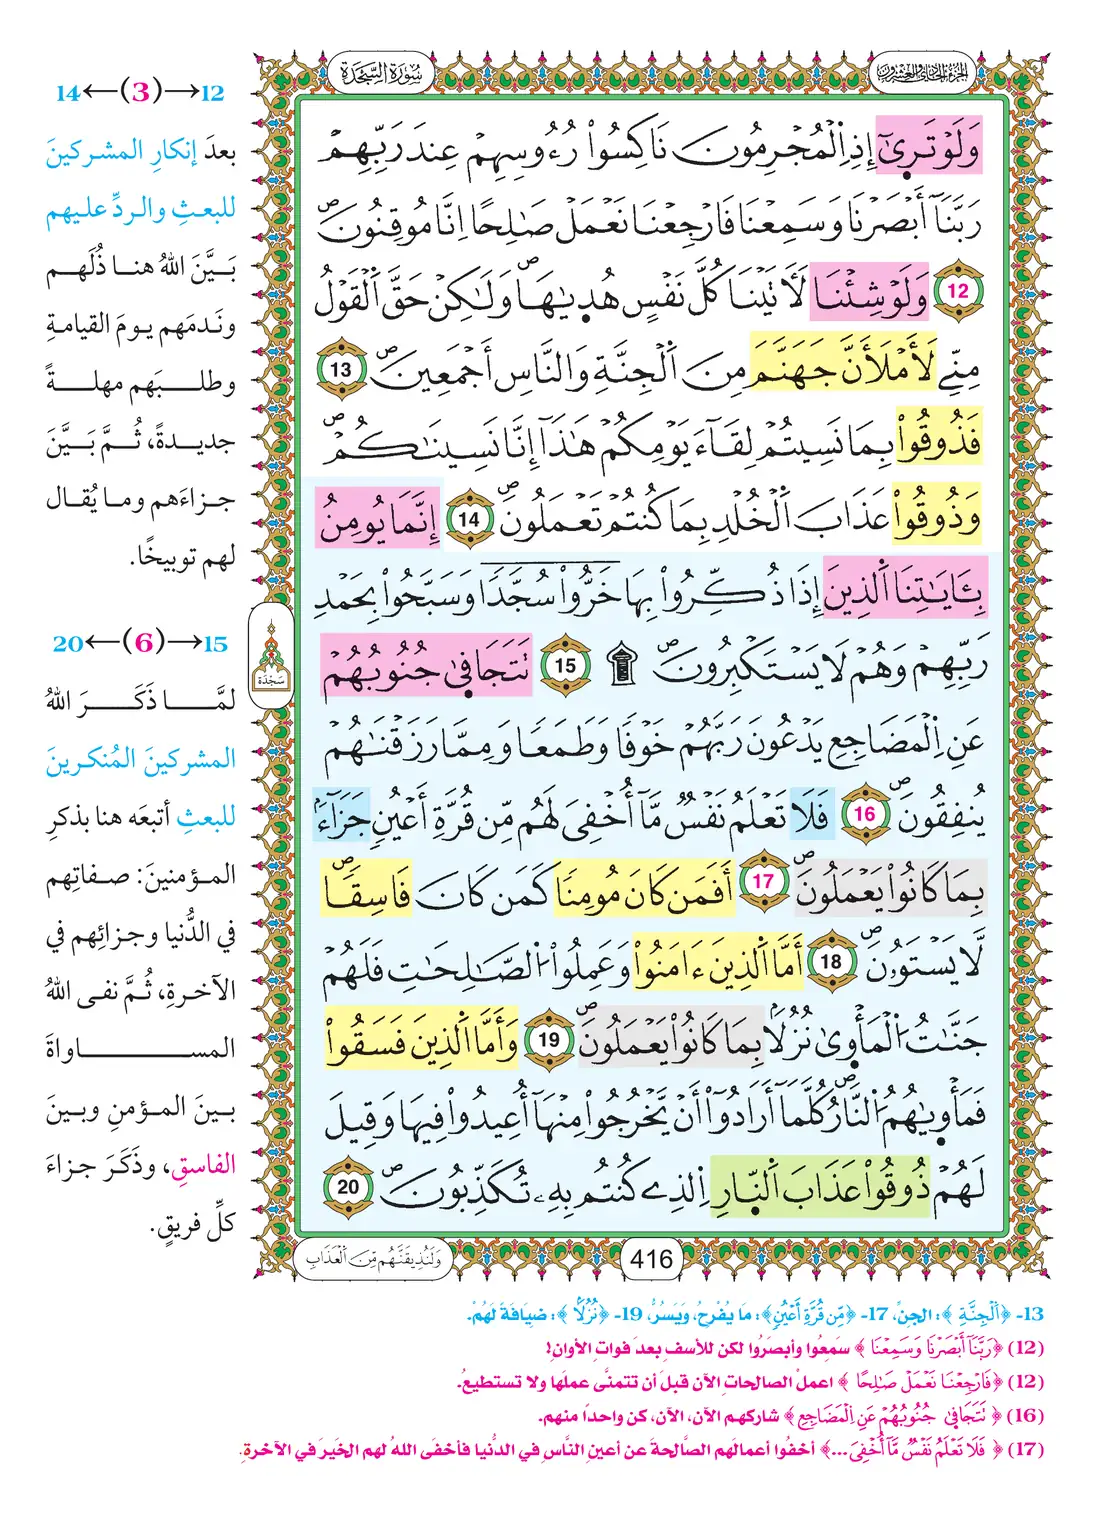 الجزء الحادي والعشرون
سُورَةُ السَّجْدَةِ
وَلَوْ تَرِىٰٓ إِذِ اِ۬لْمُجْرِمُونَ نَاكِسُواْ رُءُوسِهِمْ عِندَ رَبِّهِمْ
رَبَّنَآ أَبْصَرْنَا وَسَمِعْنَا فَارْجِعْنَا نَعْمَلْ صَٰلِحًا اِنَّا مُوقِنُونَۖ
12 وَلَوْ شِئْنَا لَأٓتَيْنَا كُلَّ نَفْسٍ هُدِيٰهَاۖ وَلَٰكِنْ حَقَّ اَ۬لْقَوْلُ
مِنِّے لَأَمْلَأَنَّ جَهَنَّمَ مِنَ اَ۬لْجِنَّةِ وَالنَّاسِ أَجْمَعِينَۖ 13
فَذُوقُواْ بِمَا نَسِيتُمْ لِقَآءَ يَوْمِكُمْ هَٰذَآ إِنَّا نَسِينَٰكُمْۖ
وَذُوقُواْ عَذَابَ اَ۬لْخُلْدِ بِمَا كُنتُمْ تَعْمَلُونَۖ 14 إِنَّمَا يُومِنُ
بِـَٔايَٰتِنَا اَ۬لذِينَ إِذَا ذُكِّرُواْ بِهَا خَرُّواْ سُجَّدًا وَسَبَّحُواْ بِحَمْدِ
رَبِّهِمْ وَهُمْ لَا يَسْتَكْبِرُونَۖ ۩ 15 تَتَجَافِىٰ جُنُوبُهُمْ
عَنِ اِ۬لْمَضَاجِعِ يَدْعُونَ رَبَّهُمْ خَوْفًا وَطَمَعًا وَمِمَّا رَزَقْنَٰهُمْ
يُنفِقُونَۖ 16 فَلَا تَعْلَمُ نَفْسٌ مَّآ أُخْفِيَ لَهُم مِّن قُرَّةِ أَعْيُنٍ جَزَآءَۢ
بِمَا كَانُواْ يَعْمَلُونَۖ 17 أَفَمَن كَانَ مُومِنًا كَمَن كَانَ فَاسِقًاۖ
لَّا يَسْتَوُۥنَۖ 18 أَمَّا اَ۬لذِينَ ءَامَنُواْ وَعَمِلُواْ اُ۬لصَّٰلِحَٰتِ فَلَهُمْ
جَنَّٰتُ اُ۬لْمَأْوِىٰ نُزُلَۢا بِمَا كَانُواْ يَعْمَلُونَۖ 19 وَأَمَّا اَ۬لذِينَ فَسَقُواْ
فَمَأْوِيٰهُمُ اُ۬لنَّارُۖ كُلَّمَآ أَرَادُوٓاْ أَنْ يَّخْرُجُواْ مِنْهَآ أُعِيدُواْ فِيهَا وَقِيلَ
لَهُمْ ذُوقُواْ عَذَابَ اَ۬لنَّارِ اِ۬لذِے كُنتُم بِهِۦ تُكَذِّبُونَۖ 20
سَجْدَة
416
وَلَنُذِيقَنَّهُم مِّنَ اَ۬لْعَذَابِ
12→(3)←14
بعدَ إنكارِ المشركينَ
للبعثِ والردِّ عليهم
بَيَّنَ اللهُ هنا ذُلَّهم
وندمَهم يومَ القيامةِ
وطلبَهم مهلةً
جديدةً، ثُمَّ بَيَّنَ
جزاءَهم وما يُقال
لهم توبيخًا.
15→(6)←20
لمَّا ذَكَرَ اللهُ
المشركينَ المُنكرينَ
للبعثِ أتبعَه هنا بذكرِ
المؤمنينَ: صفاتِهم
في الدُّنيا وجزائِهم في
الآخرةِ، ثُمَّ نفى اللهُ
المساواةَ
بينَ المؤمنِ وبينَ
الفاسقِ، وذَكَرَ جزاءَ
كلِّ فريقٍ.
13- ﴿اَ۬لْجِنَّةِ﴾: الجنِّ، 17- ﴿مِّن قُرَّةِ أَعْيُنٍ﴾: مَا يُفْرِحُ، وَيَسُرُّ، 19- ﴿نُزُلًا﴾: ضِيَافَةً لَهُمْ.
(12) ﴿رَبَّنَآ أَبْصَرْنَا وَسَمِعْنَا﴾ سَمِعُوا وأبصَرُوا لكن للأسفِ بعدَ فواتِ الأوانِ!
(12) ﴿فَارْجِعْنَا نَعْمَلْ صَٰلِحًا﴾ اعملْ الصالحاتِ الآن قبلَ أن تتمنَّى عملَها ولا تستطيعُ.
(16) ﴿تَتَجَافِىٰ جُنُوبُهُمْ عَنِ اِ۬لْمَضَاجِعِ﴾ شاركهم الآن، الآن، كن واحدًا منهم.
(17) ﴿فَلَا تَعْلَمُ نَفْسٌ مَّآ أُخْفِيَ...﴾ أخفُوا أعمالَهم الصَّالحةَ عن أعينِ النَّاسِ في الدُّنيا فأخفَى اللهُ لهم الخَيرَ في الآخرةِ.